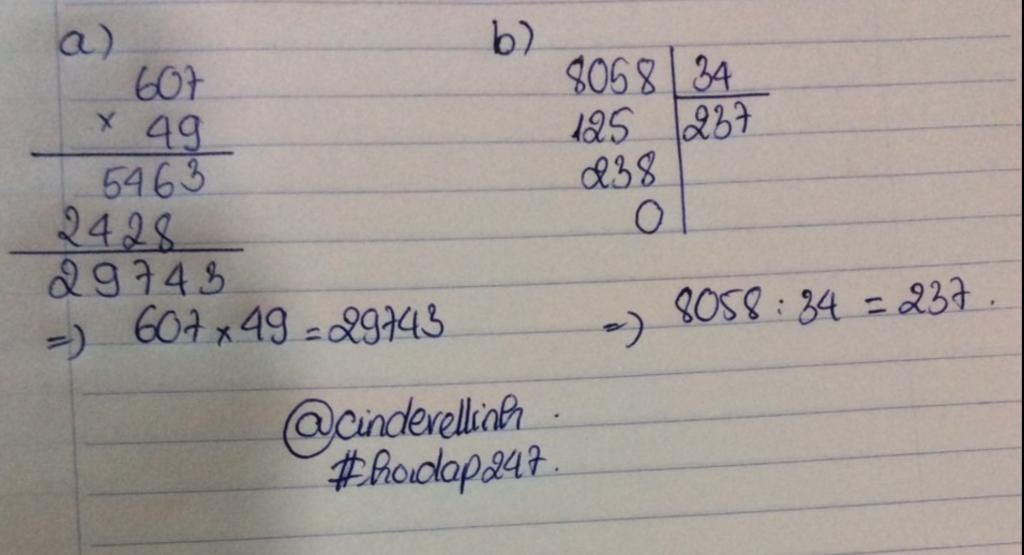 a)
607
× 49
5463
2428
29743
=) 607 × 49 = 29743
b)
8058 34
125 237
238
0
=) 8058 : 34 = 237.
@cinderellinh.
#hoidap247.